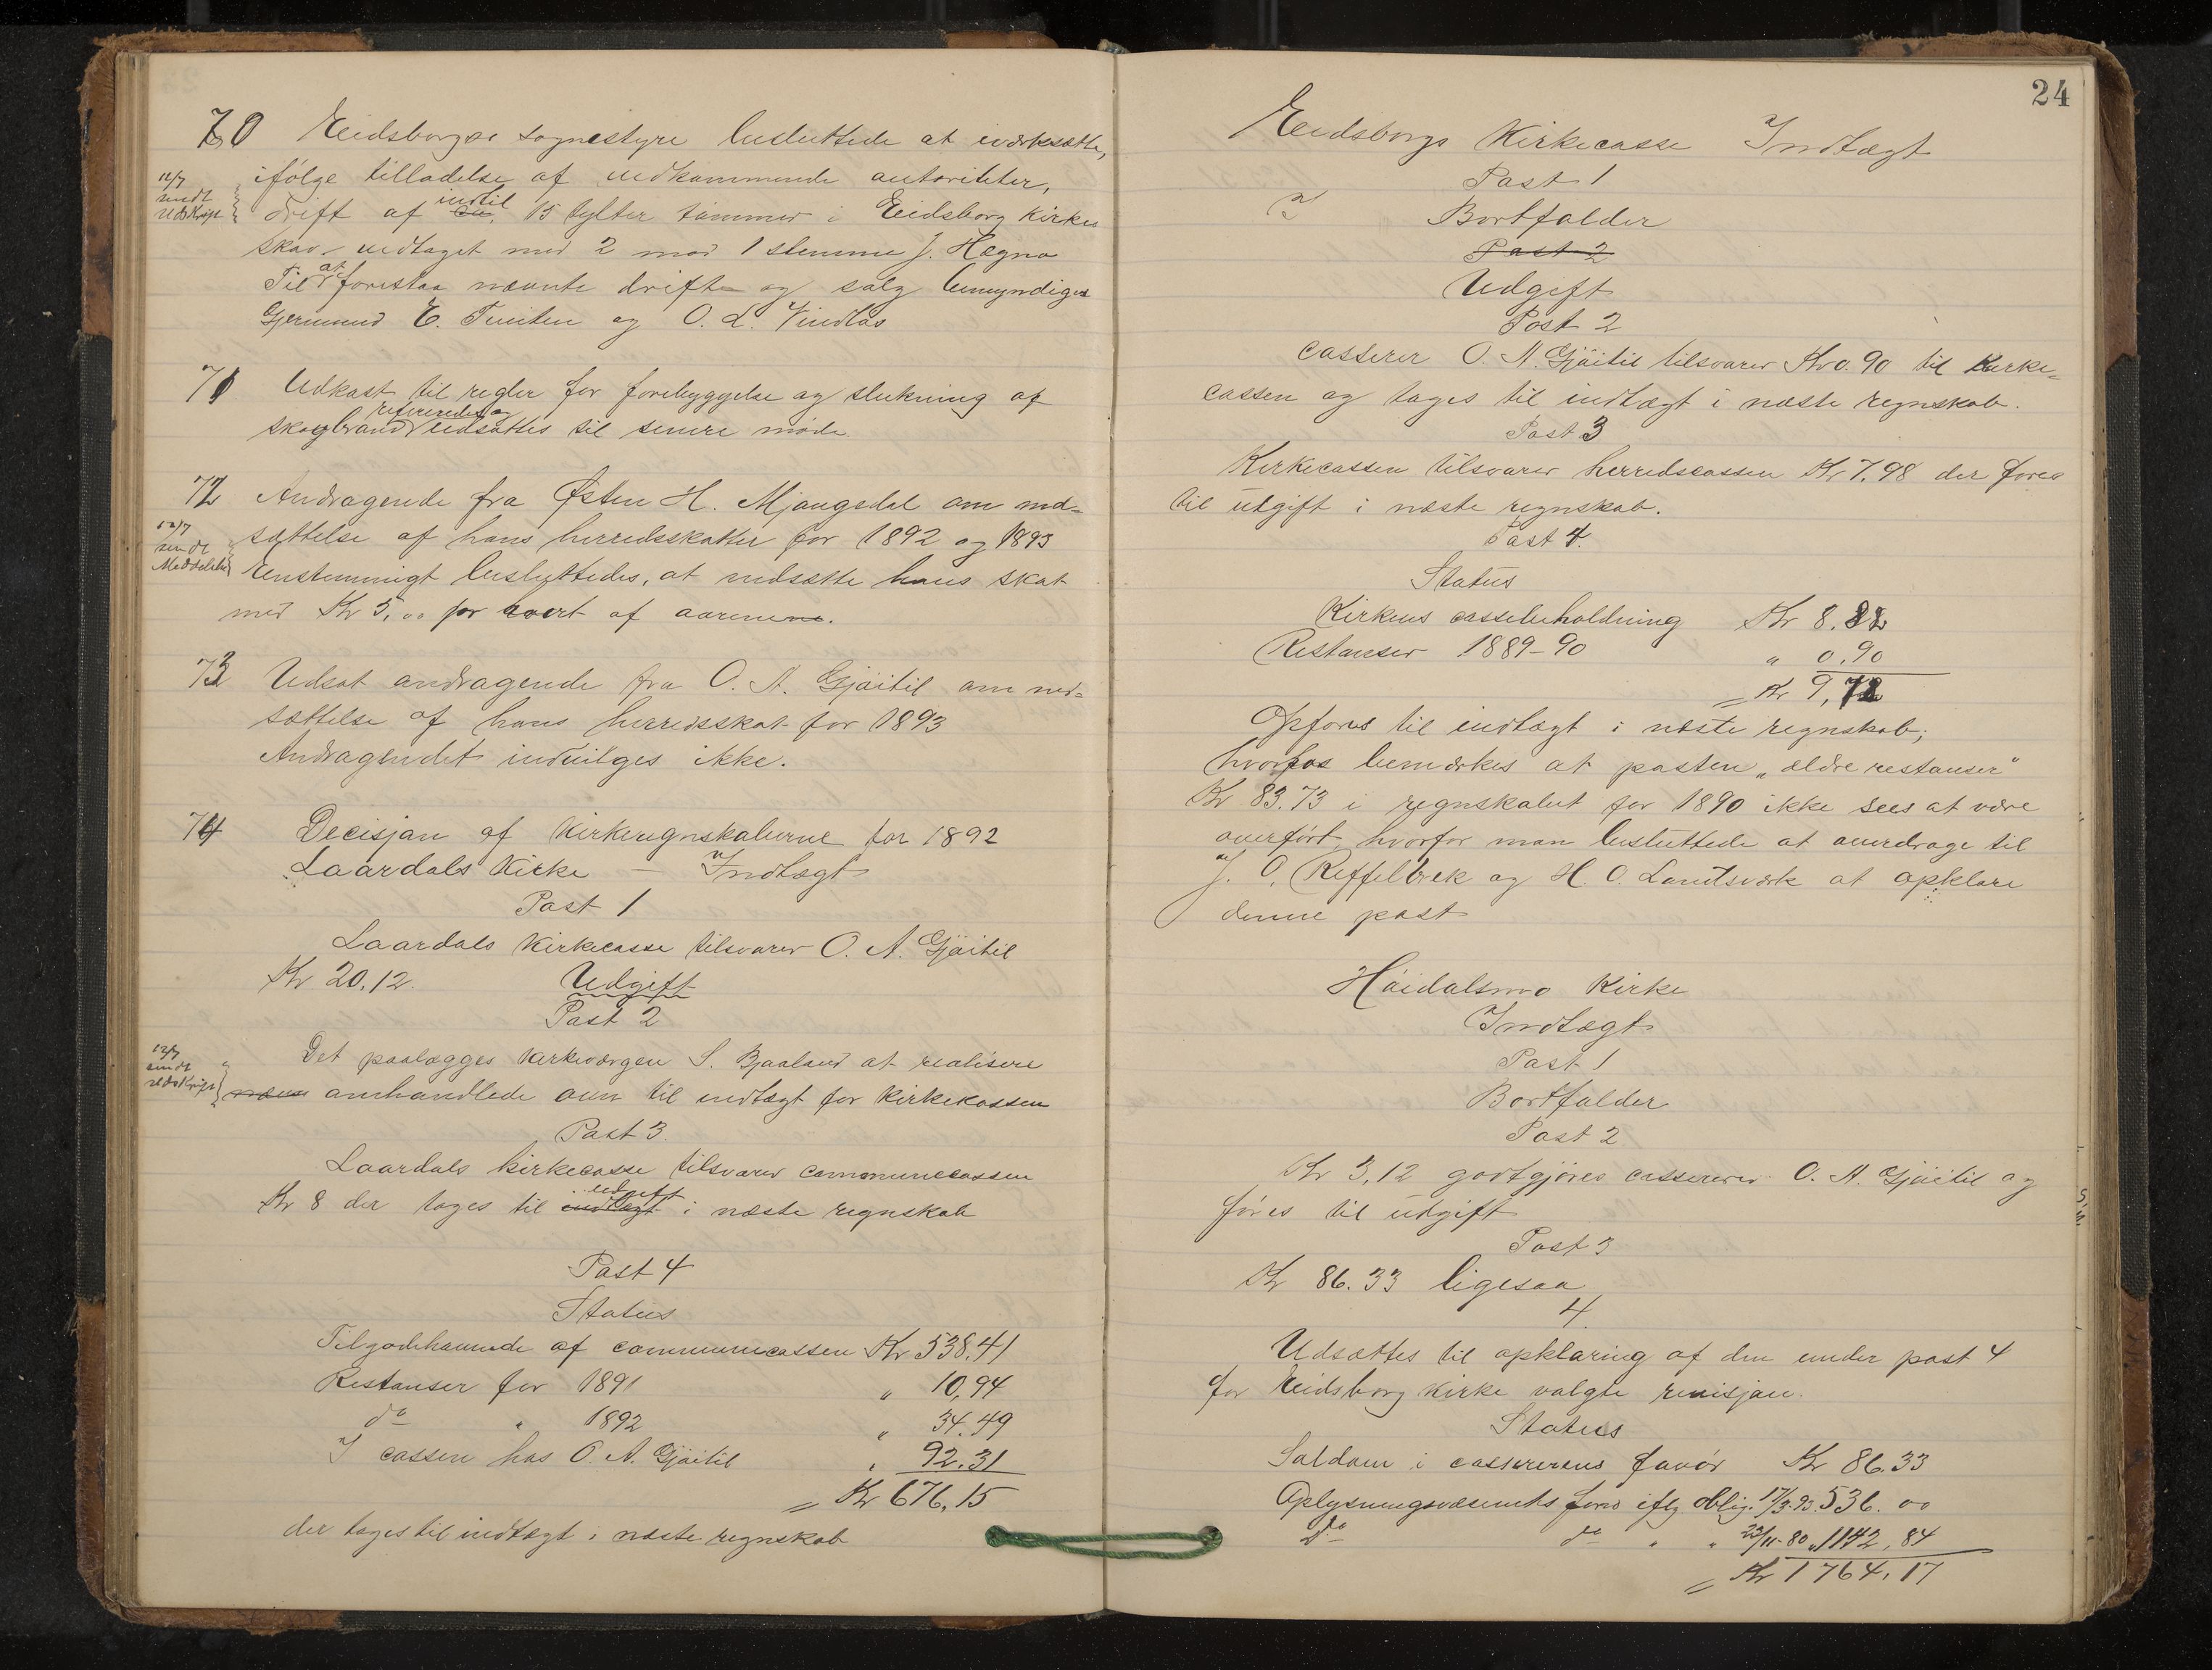 70 Eidsborgs sognestyre besluttede at iværksætte,
12/7 sendt udskrift
ifølge tilladelse af vedkommende autoriteter,
drift af ca. indtil 15 tylter tømmer i Eidsborg kirkes
skov. vedtaget med 2 mod 1 stemme J. Hægna
Til at forestaa nævnte drift og salg bemyndiges
Gjermund E. Tveiten og O. L. Vindlas
71 Udkast til regler for forebyggelse og slukning af
skogbrand refereredes og udsattes til senere møde.
72 Andragende fra Østen H. Mjaugedal om ned-
12/7 sendt Meddelelse
sættelse af hans herredsskatter for 1892 og 1893
Enstemmigt besluttedes, at nedsætte hans skat
med Kr 5,00 for hvert af aarene.
73 Udsat andragende fra O. A. Gjøitil om ned-
sættelse af hans herredsskat for 1893
Andragendet indvilges ikke.
74 Decisjon af kirkeregnskaberne for 1892
Laardals Kirke – Indtægt
Post 1
Laardals kirkecasse tilsvarer O. A. Gjøitil
Kr 20.12. Udgift
Post 2
12/7 sendt udskrift
Det paalægges kirkeværgen S. Bjaaland at realisere
omhandlede ovn til indtægt for kirkekassen
Post 3.
Laardals kirkecasse tilsvarer communecassen
Kr 8 der tages til indtægt udgift i næste regnskab
Post 4
Status
Tilgodehavende af communecassen Kr 538.41
Restanser for 1891 " 10,94
do " 1892 " 34.49
I cassen hos O. A. Gjøitil " 92.31
= Kr 676,15
der tages til indtægt i næste regnskab
24
Eidsborgs Kirkecasse Indtægt
Post 1
Bortfalder
Post 2
Udgift
Post 2
Casserer O. A. Gjøitil tilsvarer Kr 0.90 til Kirke-
cassen og tages til indtægt i næste regnskab.
Post 3
Kirkecassen tilsvarer herredscassen Kr 7.98 der føres
til utgift i næste regnskab.
Post 4.
Status
Kirkens cassebeholdning Kr 8.82
Restanser 1889–90 " 0.90
= Kr 9,72
Opføres til indtægt i næste regnskab;
hvorhos bemærkes at posten „ældre restanser"
Kr 83.73 i regnskabet for 1890 ikke sees at være
overført, hvorfor man besluttede at overdrage til
J. O. Reffelbæk og H. O. Landsværk at opklare
denne post
Høidalsmo Kirke
Indtægt
Post 1
Bortfalder
Post 2
Kr 3,12 godtgjøres cassererer O. A. Gjøitil og
føres til udgift
Post 3
Kr 86.33 ligesaa
4.
Udsættes til opklaring af den under post 4
for Eidsborg Kirke valgte revisjon.
Status
Saldoen i cassererens favør Kr 86.33
Oplysningsvæsenets fond iflg. oblig. 17/3.93. 536.00
do do " " 22/11-80 „ 1142,84
= Kr 1764,17